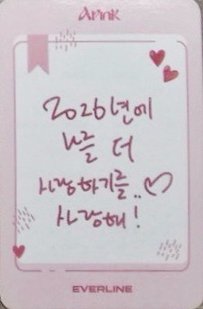 Apink
2026년에
나를 더
사랑하기를..♡
사랑해!
EVERLINE